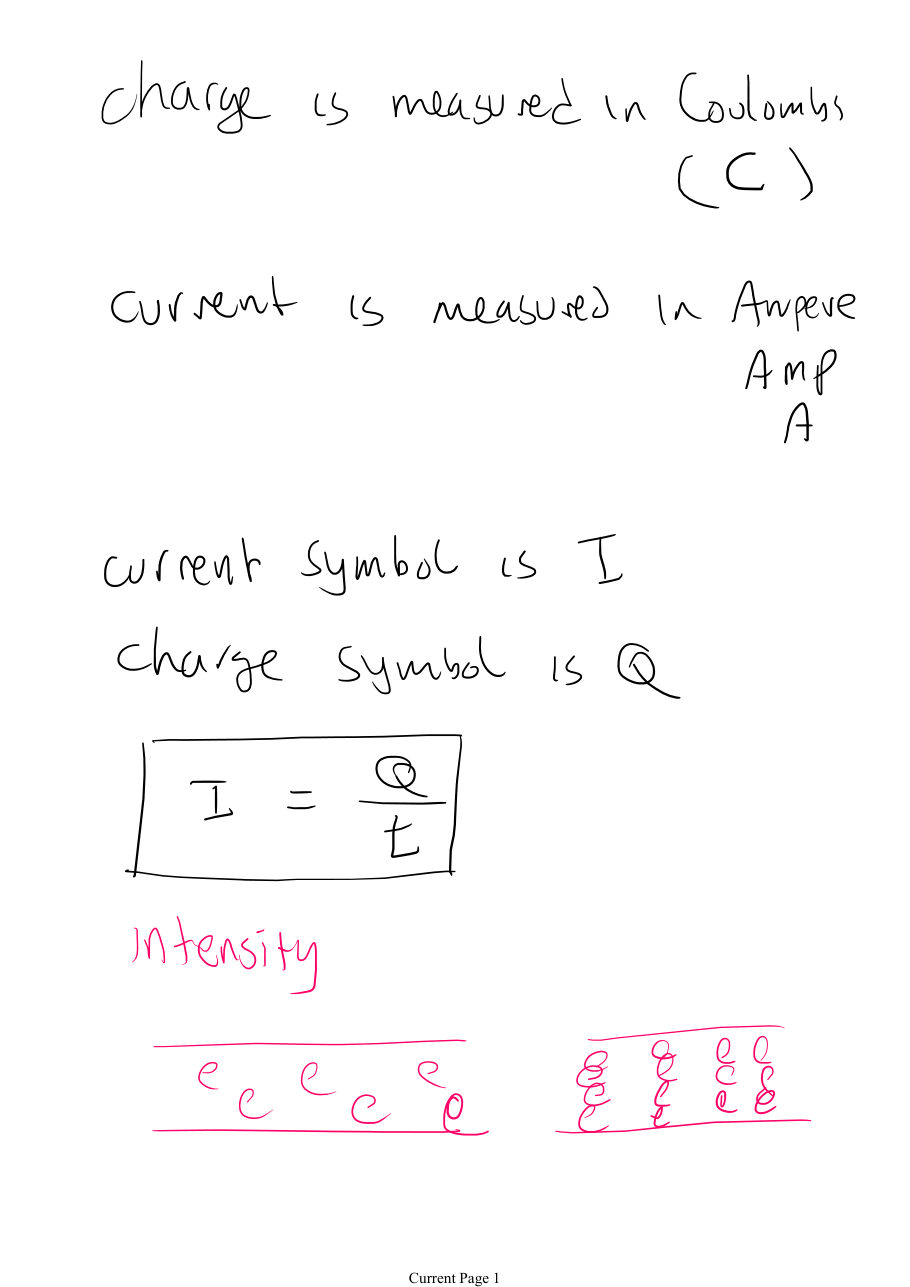 charge is measured in Coulombs
(C)
current is measured in Ampere
Amp
A
current symbol is I
charge symbol is Q
I = Q/t
intensity
e e e e e e
e e e e
e e c e
e e e e
e e
Current Page 1